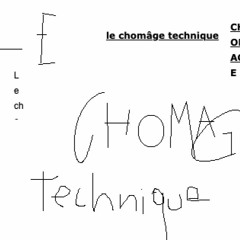 E
le chomâge technique
CH
OM
AG
E
L
e
ch
-
CHOMAG
technique